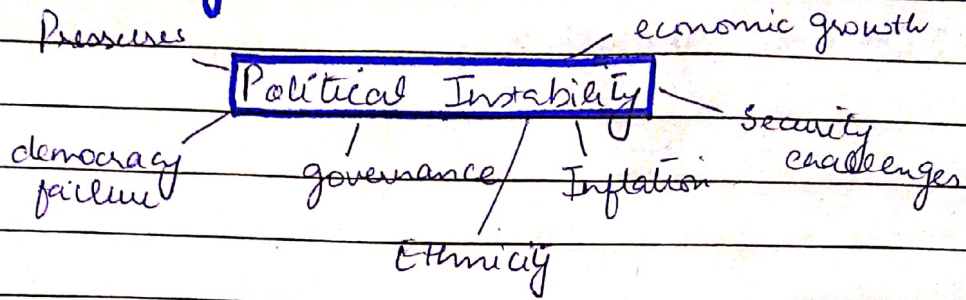 Pressures
economic growth
Political Instability
security
challenges
democracy
failure
governance
Inflation
Ethnicity